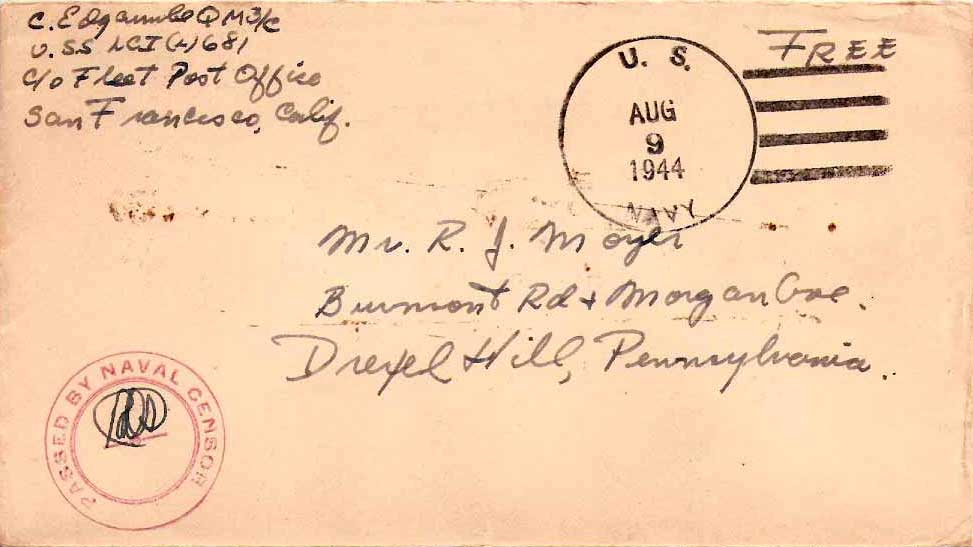 C. Edgcumbe QM3/c
U.S.S LCI(L)681
c/o Fleet Post Office
San Francisco, Calif.
FREE
U. S.
AUG
9
1944
NAVY
Mr. R. J. Moyer
Burmont Rd + Morgan Ave.
Drexel Hill, Pennsylvania.
PASSED BY NAVAL CENSOR